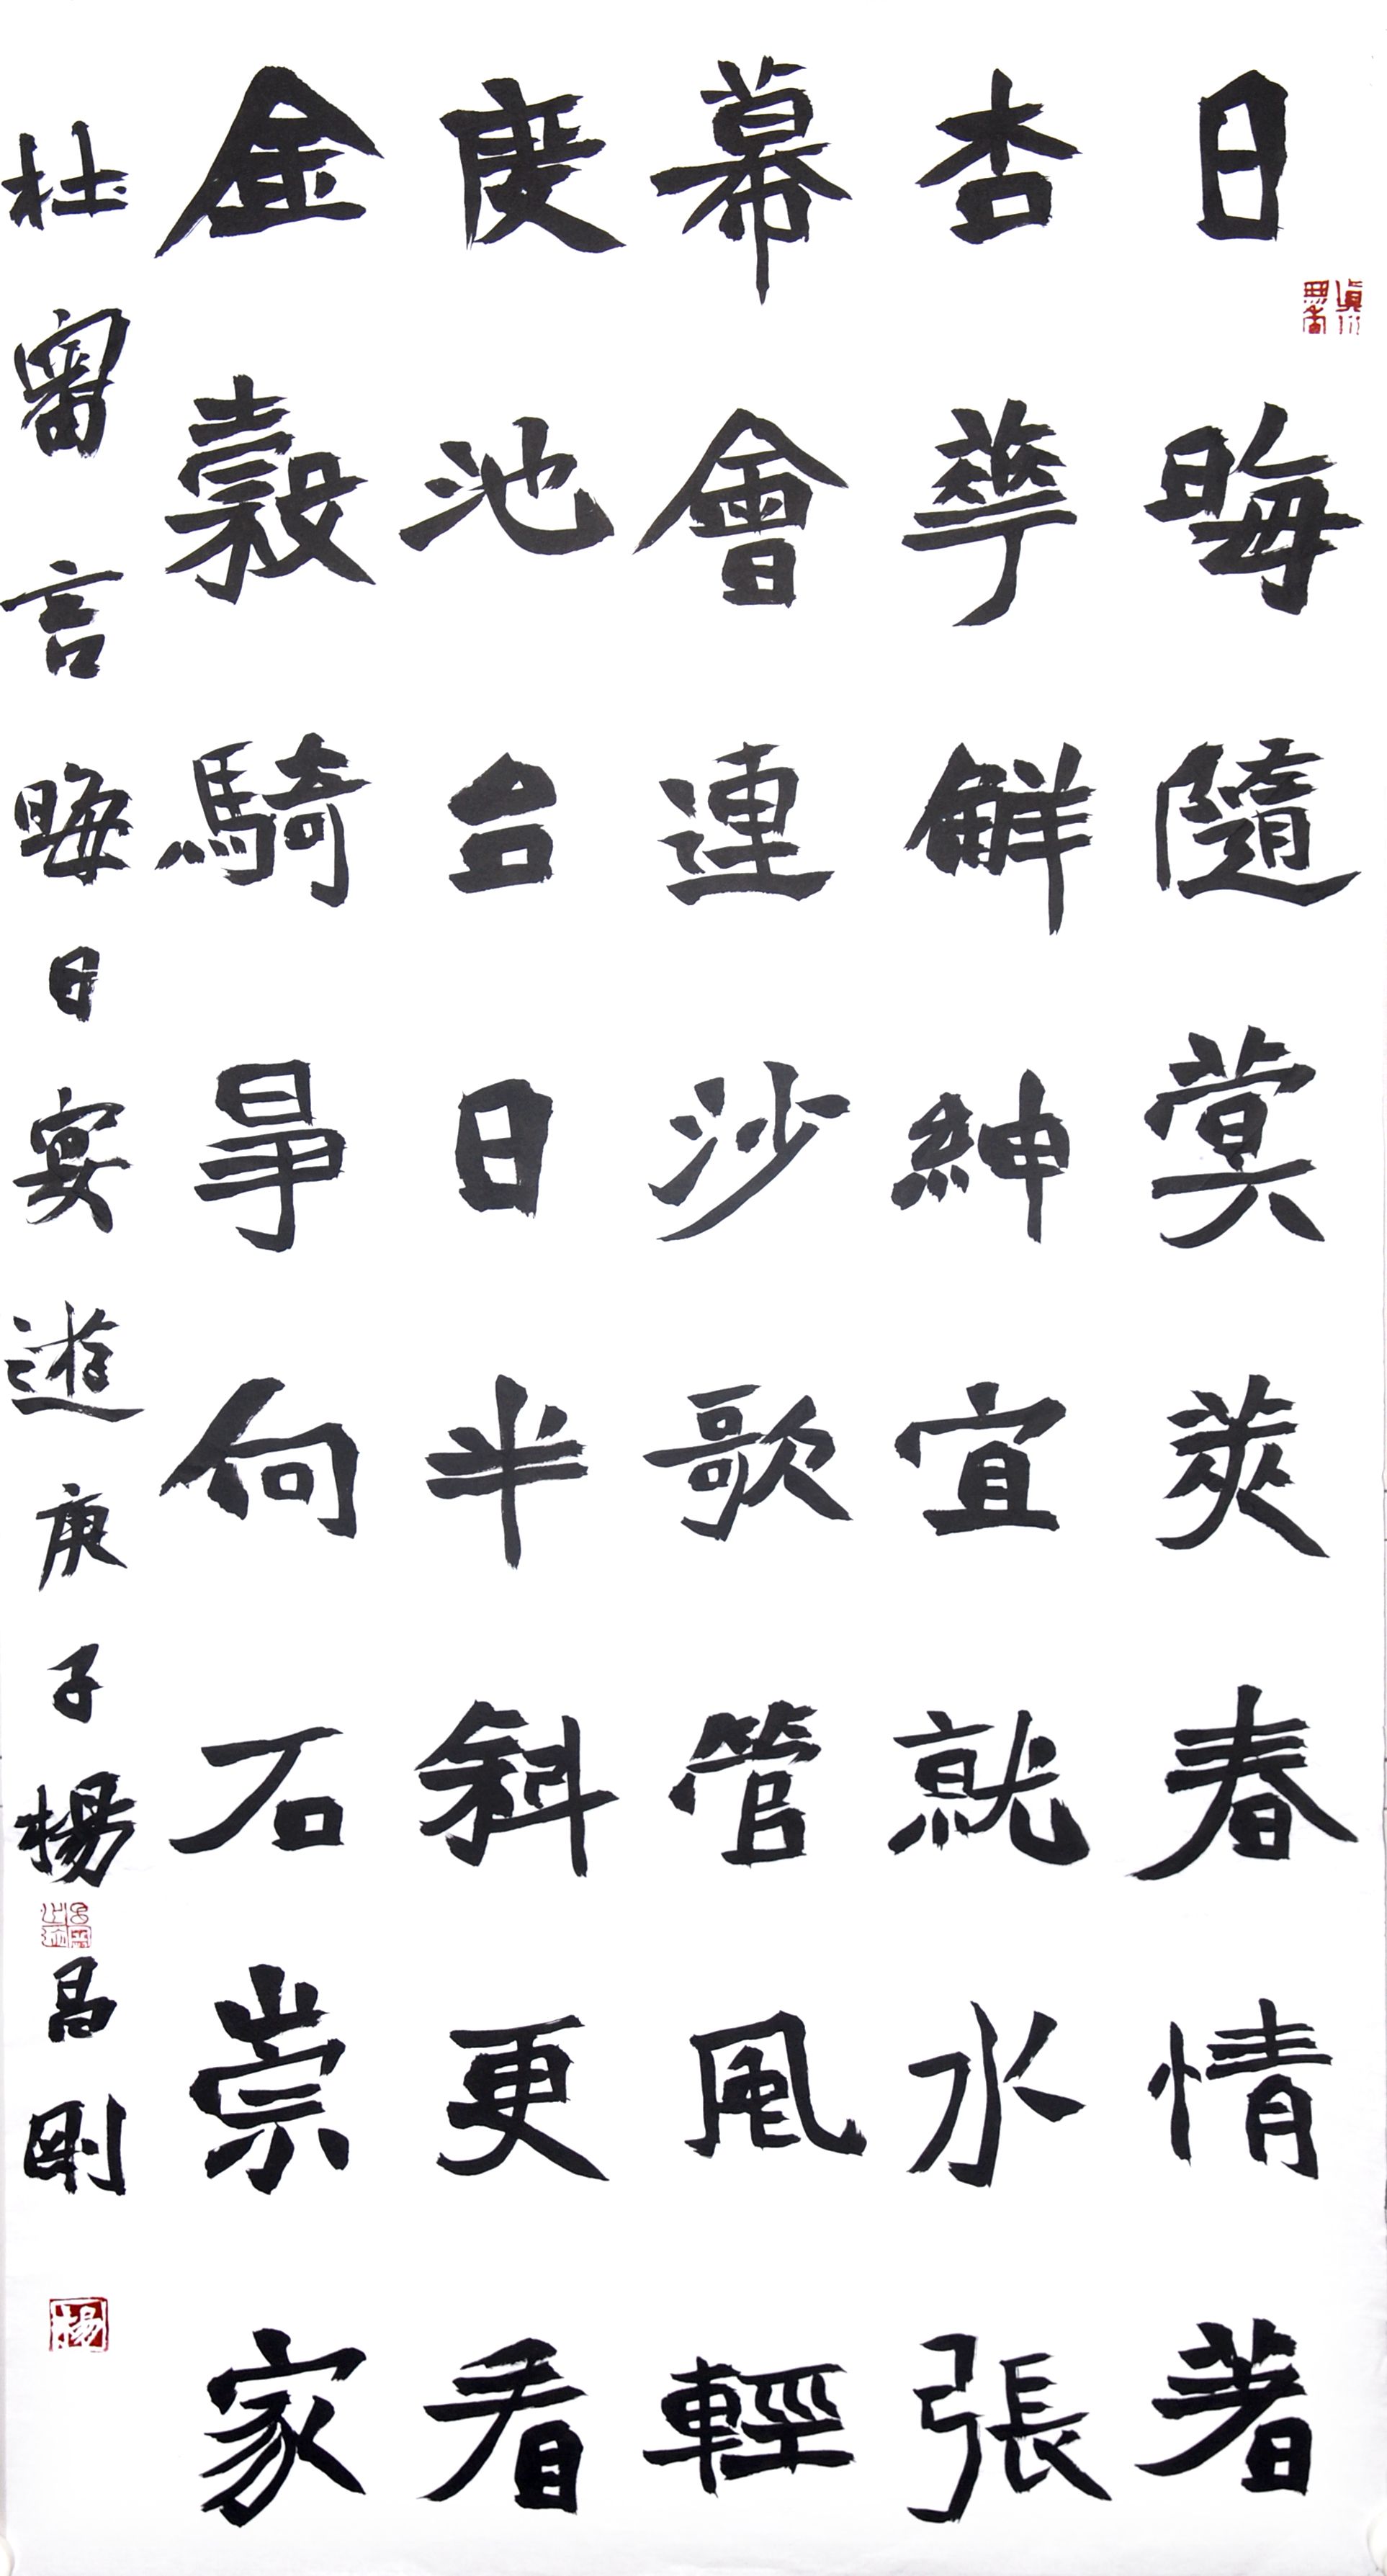 日晦隨蓂莢春情著
杏華觧紳宜就水張
幕會連沙歌管風輕
度池台日半斜更看
金穀騎爭向石崇家
杜審言晦日宴遊庚子楊昌剛
真水無香
楊